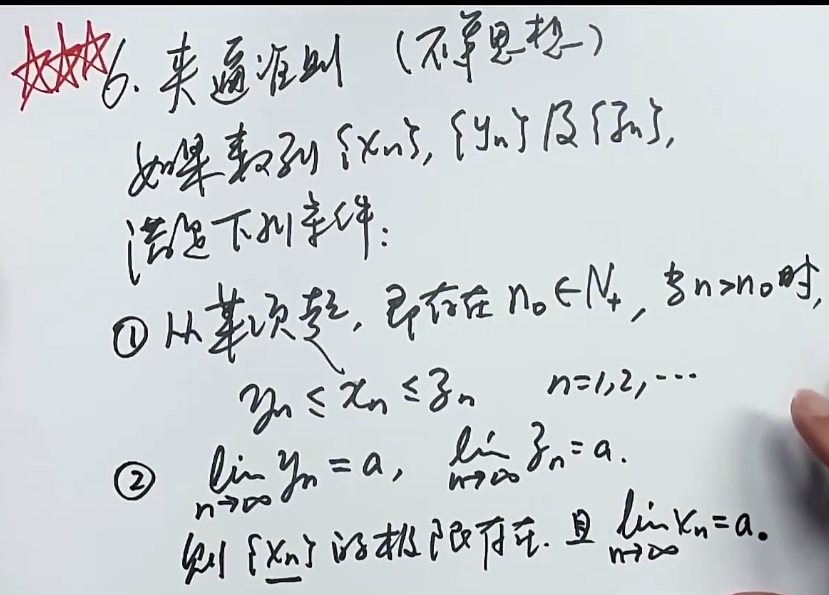 ☆☆☆ 6. 夹逼准则 (夹逼思想)
如果数列 {xₙ}, {yₙ} 及 {zₙ},
满足下列条件:
① 从某项起, 即存在 n₀∈N₊, 当 n>n₀ 时,
yₙ ≤ xₙ ≤ zₙ n=1,2,⋯
② lim_{n→∞} yₙ = a, lim_{n→∞} zₙ = a.
则 {xₙ} 的极限存在. 且 lim_{n→∞} xₙ = a.